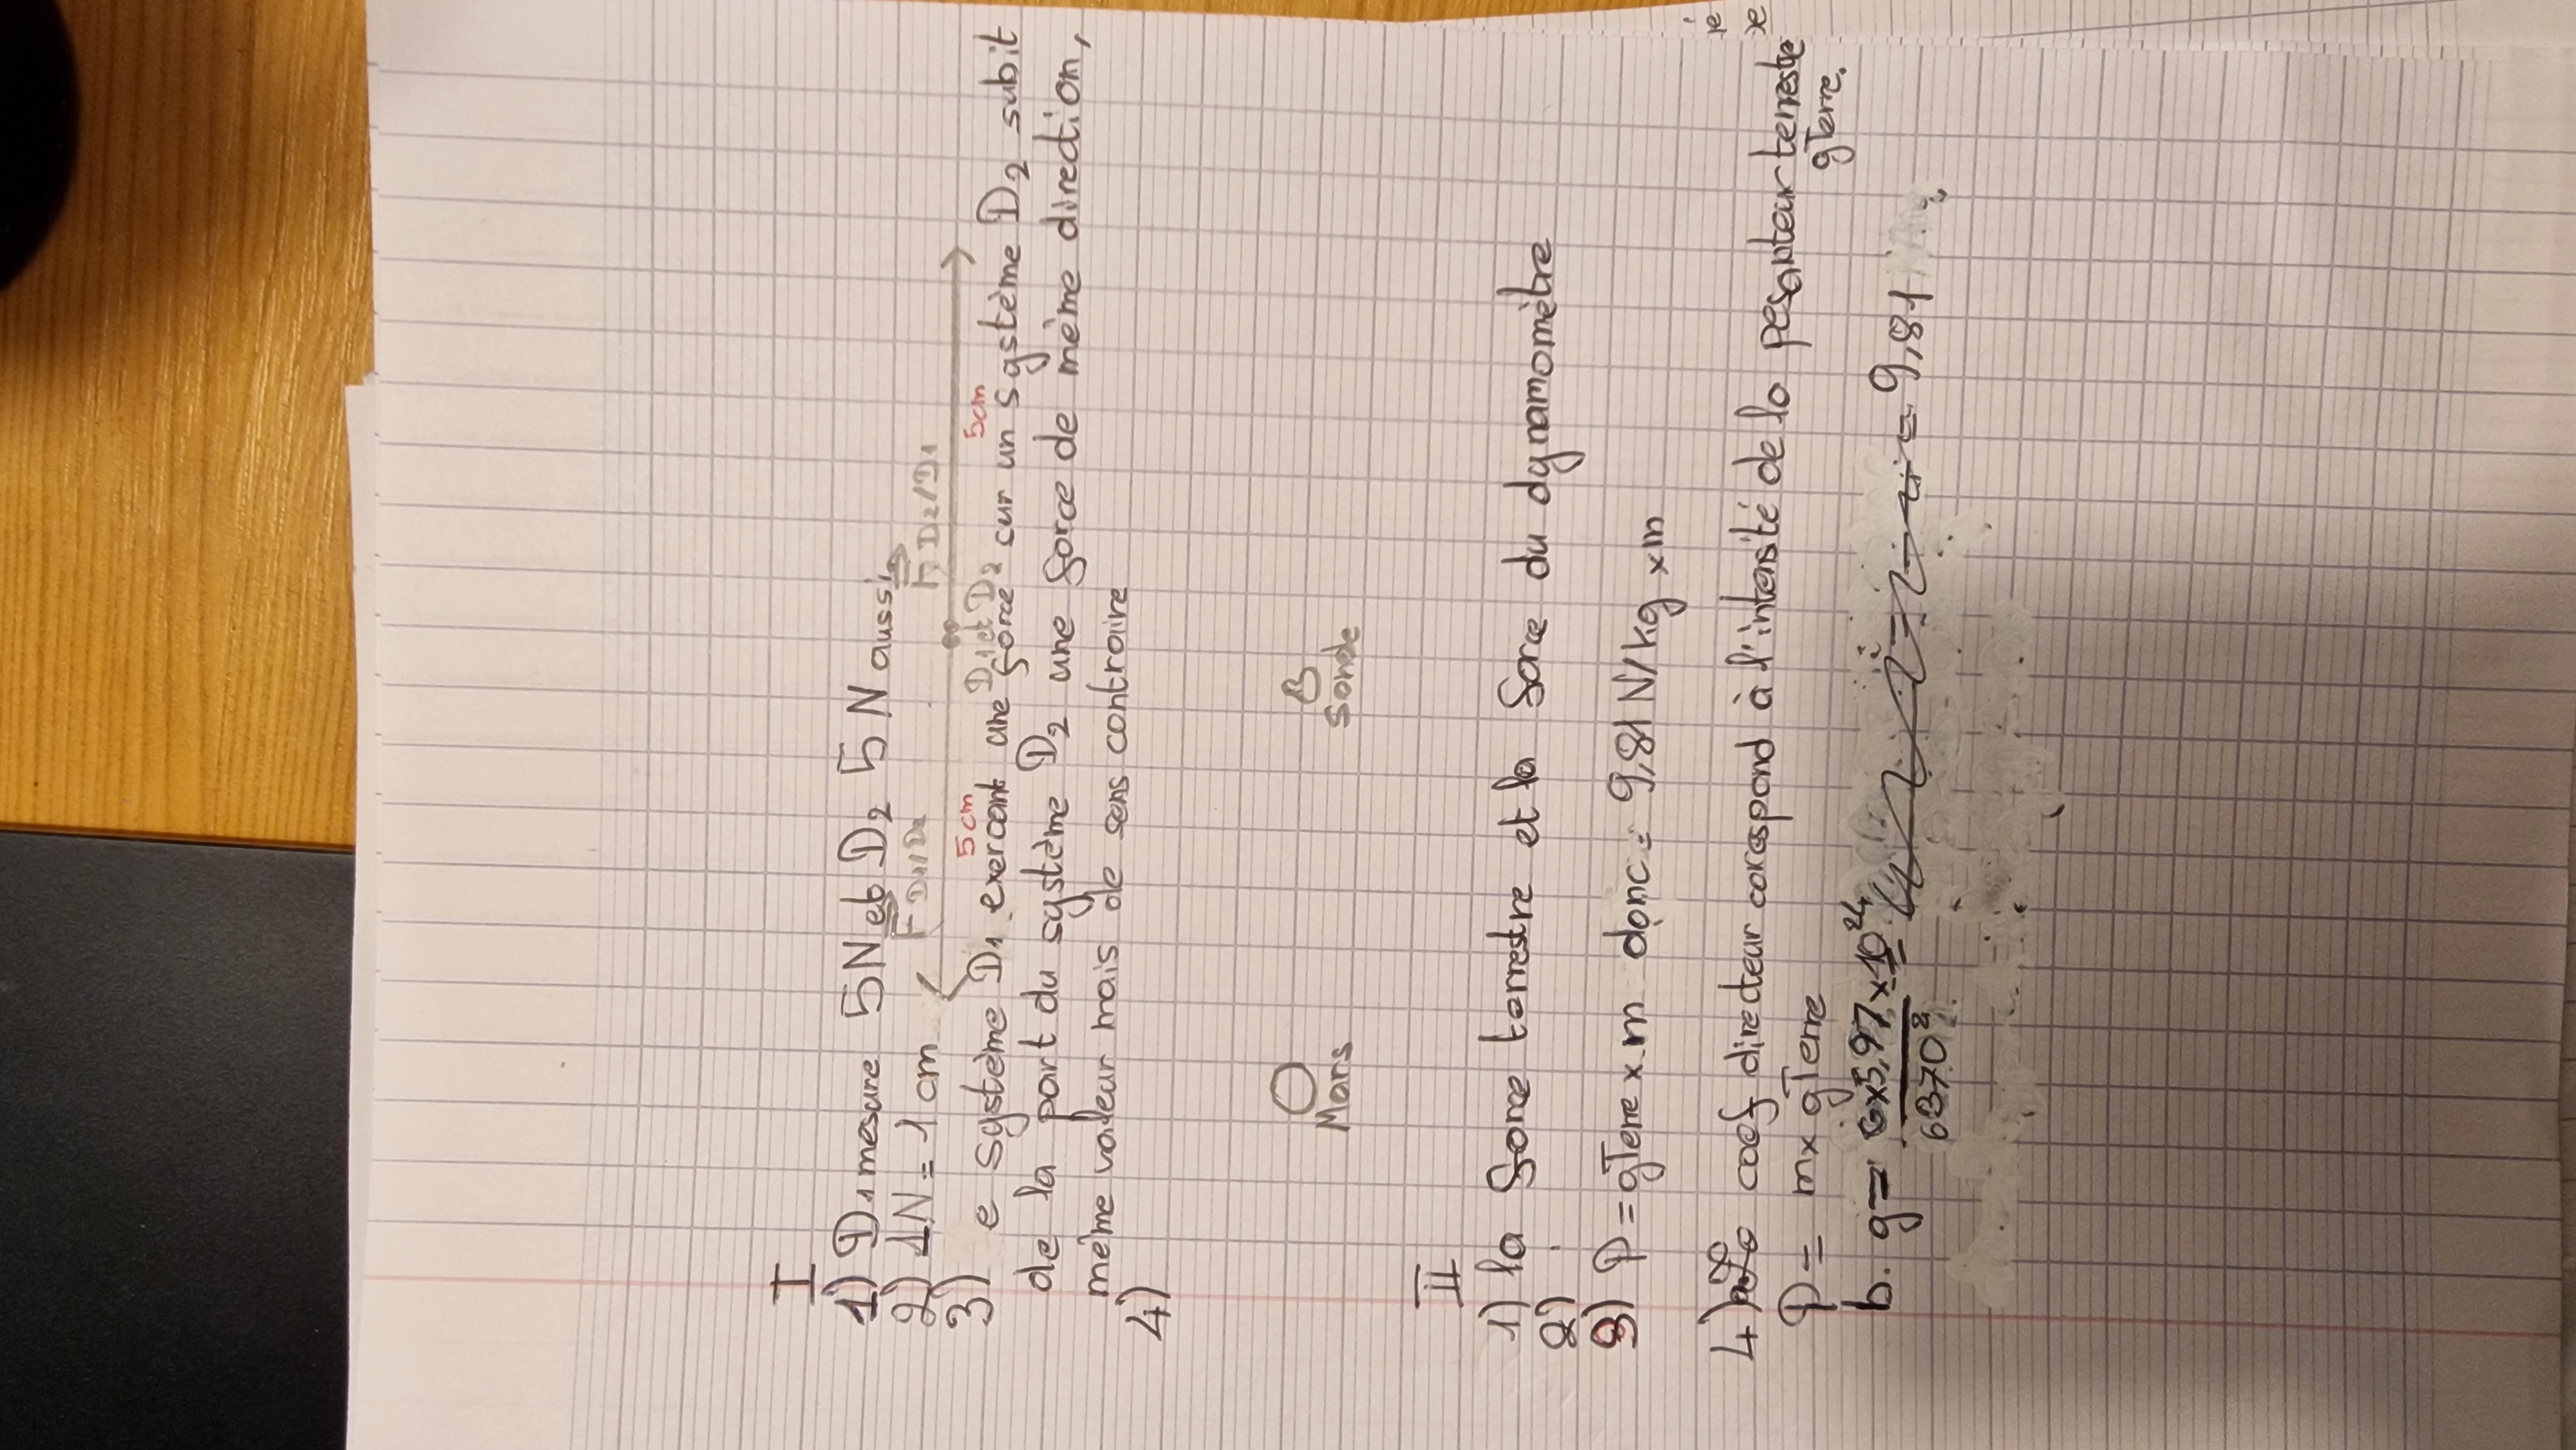 I
1) D1 mesure 5N et D2 5N aussi
2) 1N = 1 cm
F D1/D2
F D2/D1
5cm
5cm
D1 et D2
3) e système D1 exercant une force cur un système D2 subit
de la part du système D2 une force de même direction,
même valeur mais de sens controire
4)
Mars
Sonde
II
1) la force terrestre et la force du dynamomètre
2)
3) P = gTerre x m donc = 9,81 N/kg x m
4) coef directeur corespond à l'intensité de la pesanteur terrestre
gTerre.
P = m x gTerre
b. g = G x 5,97 x 10^24 / 6370^2 = 9,81